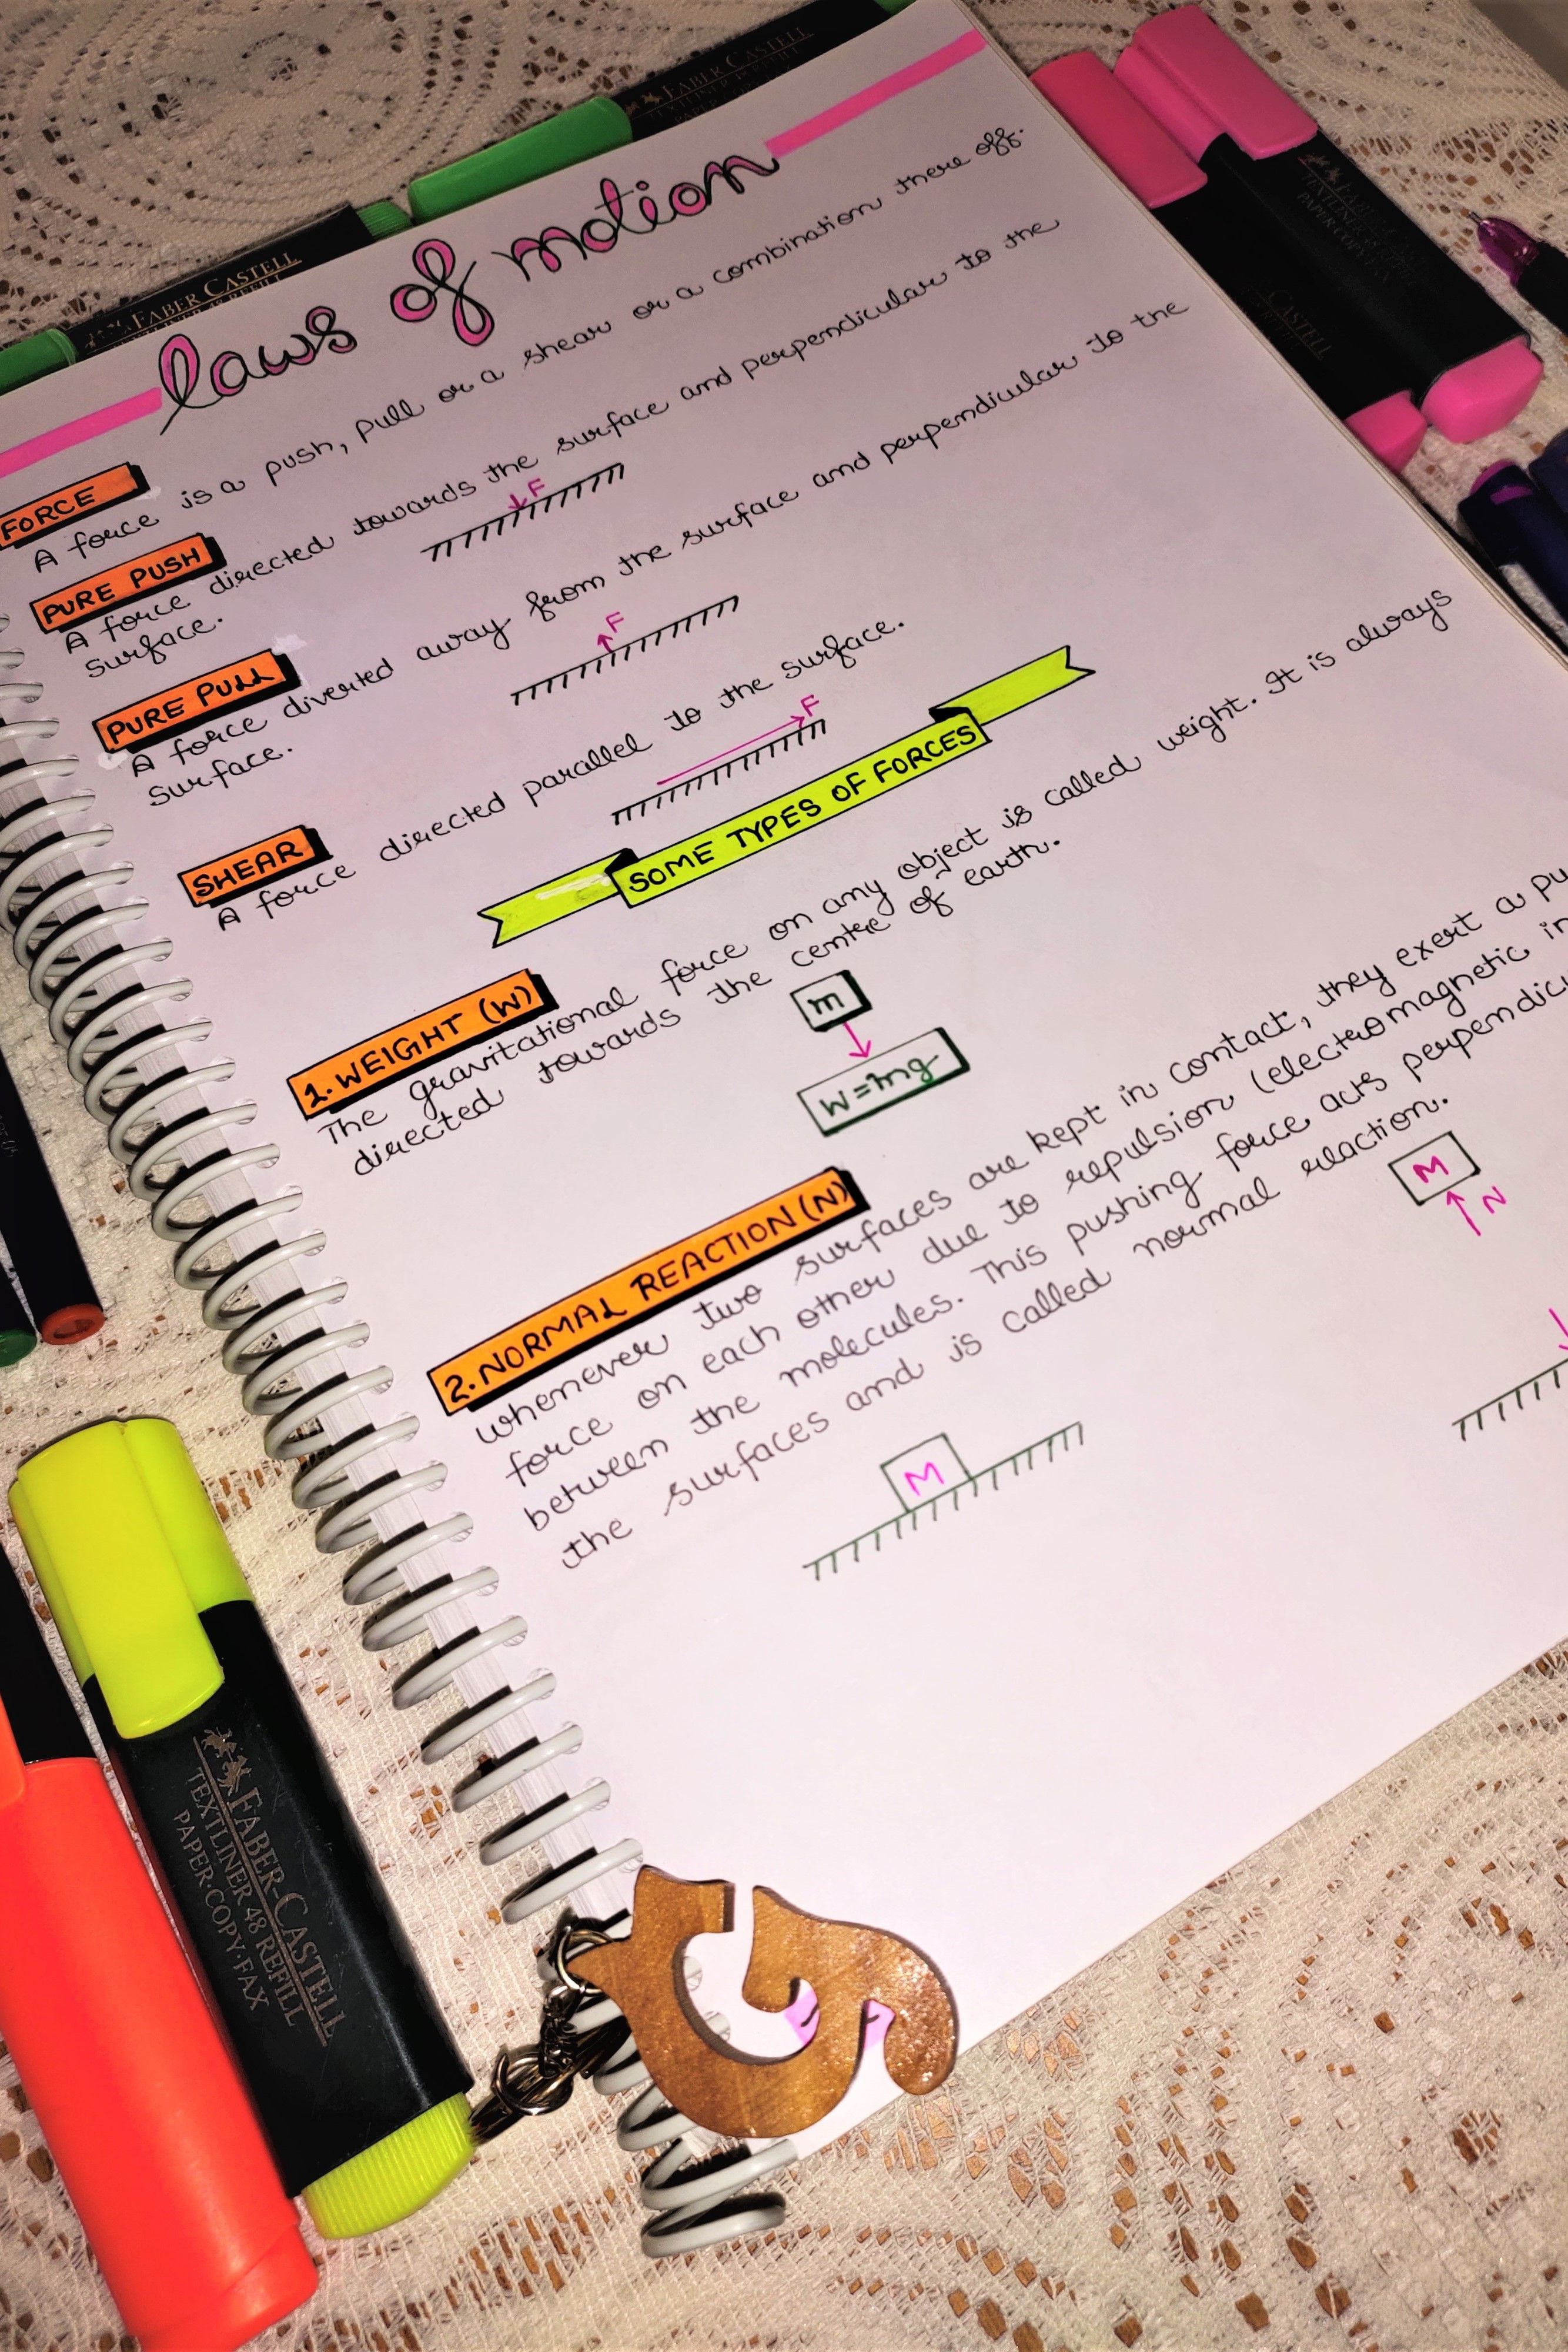 laws of motion
FORCE
A force is a push, pull or a shear or a combination there off.
PURE PUSH
A force directed towards the surface and perpendicular to the
surface.
F
PURE PULL
A force diverted away from the surface and perpendicular to the
surface.
F
SHEAR
A force directed parallel to the surface.
F
SOME TYPES OF FORCES
1. WEIGHT (W)
The gravitational force on any object is called weight. It is always
directed towards the centre of earth.
m
W=mg
2. NORMAL REACTION (N)
whenever two surfaces are kept in contact, they exert a
force on each other due to repulsion (electromagnetic
between the molecules. This pushing force acts
the surfaces and is called normal reaction.
M
N
M
FABER CASTELL
FABER CASTELL
FABER CASTELL
TEXTLINER 48 REFILL
PAPER·COPY·FAX
CASTELL
FABER-CASTELL
TEXTLINER 48 REFILL
PAPER·COPY·FAX